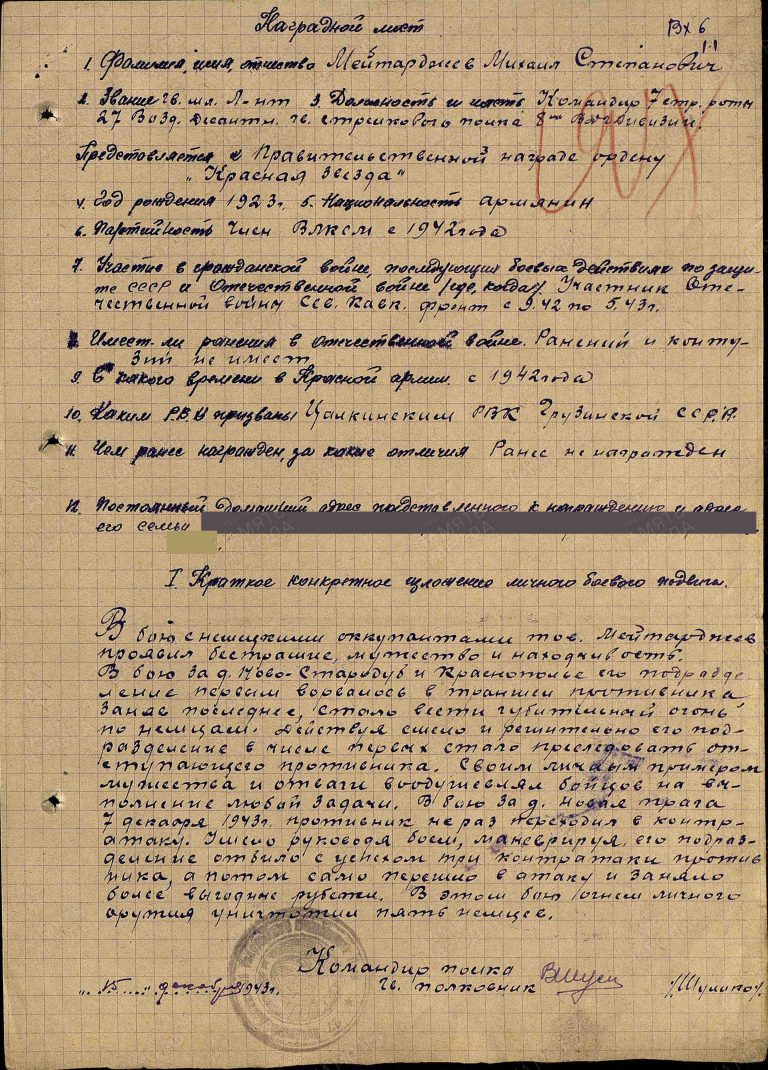 Наградной лист
Вх 6
1. Фамилия, имя, отчество Мейтарджев Михаил Степанович
2. Звание гв. мл. Л-нт 3. Должность и часть Командир 7 стр. роты
27 Возд. Десантн. гв. стрелкового полка 8ой ВДгв Дивизии.
Представляется к Правительственной награде ордену
"Красная Звезда"
4. Год рождения 1923 г. 5. Национальность армянин
6. Партийность Член ВЛКСМ с 1942 года
7. Участие в гражданской войне, последующих боевых действиях по защи-
те СССР и Отечественной войне (где, когда) Участник Оте-
чественной войны Сев. Кавк. фронт с 9.42 по 5.43 г.
8. Имеет ли ранения в отечественной войне. Ранений и конту-
зий не имеет
9. С какого времени в Красной армии с 1942 года
10. Каким Р.В.К призваны Цалкинским РВК Грузинской ССР.
11. Чем ранее награжден, за какие отличия Ранее не награжден
12. Постоянный домашний адрес представленного к награждению и адрес
его семьи
I. Краткое конкретное изложение личного боевого подвига.
В бою с немецкими оккупантами тов. Мейтарджев
проявил бестрашие, мужество и находчивость.
В бою за д. Ново-Стародуб и Краснополье его подразде
ление первым ворвалось в траншеи противника
заняв последнее, стало вести губительный огонь
по немцам. Действуя смело и решительно его под-
разделение в числе первых стало преследовать от-
ступающего противника. Своим личным примером
мужества и отваги воодушевлял бойцов на вы-
полнение любой задачи. В бою за д. новая прага
7 декабря 1943 г. противник не раз переходил в контр-
атаку. Умело руководя боем, маневрируя, его подраз-
деление отбило с успехом три контратаки против
ника, а потом само перешло в атаку и заняло
более выгодные рубежи. В этом бою огнем личного
оружия уничтожил пять немцев.
Командир полка
"15" декабря 1943 г. гв. полковник /Шулико/.